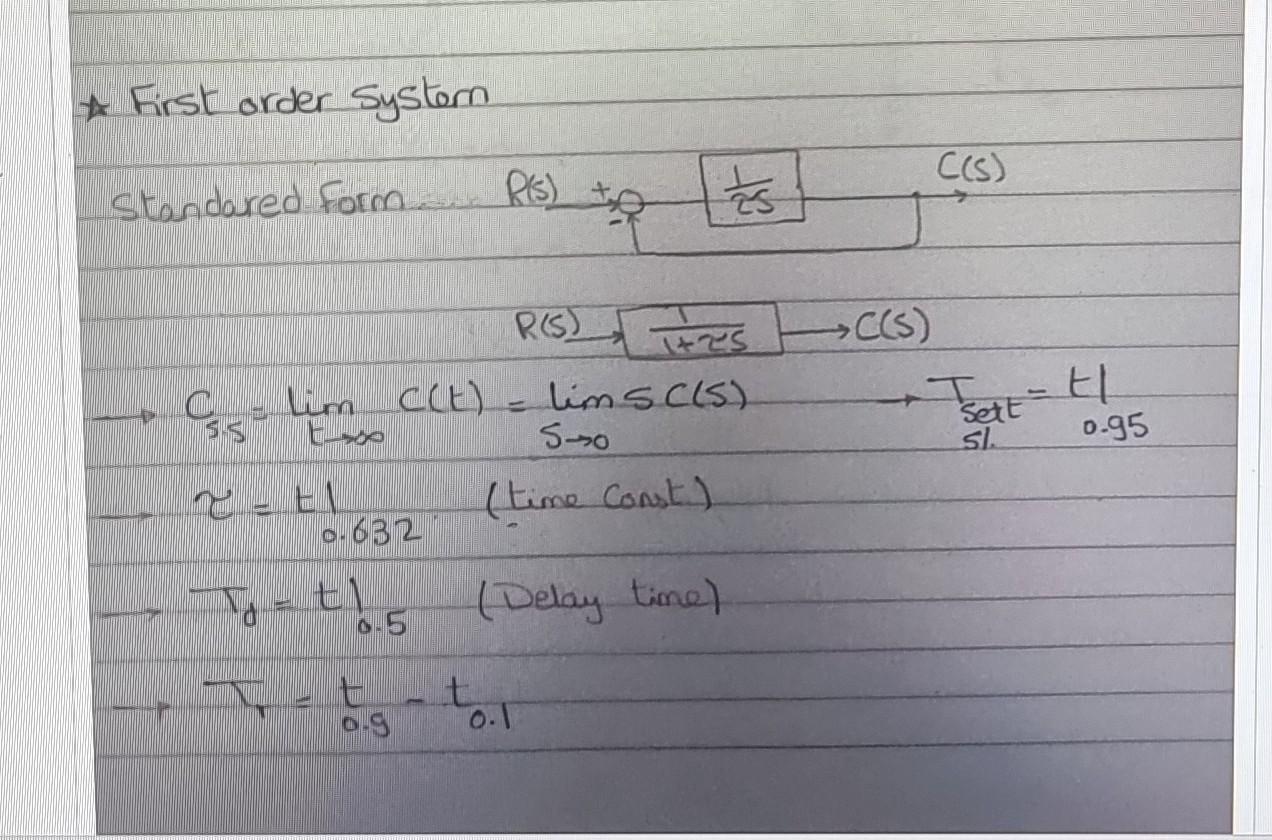 ☆ First order System
Standared Form R(s) + - 1/τS C(S)
R(S) 1/1+τS C(S)
→ C s.s = lim t→∞ C(t) = lim S→0 S C(S) → T Sett 5% = t| 0.95
→ τ = t| 0.632 (time Const)
→ Td = t| 0.5 (Delay time)
→ Tr = t 0.9 - t 0.1